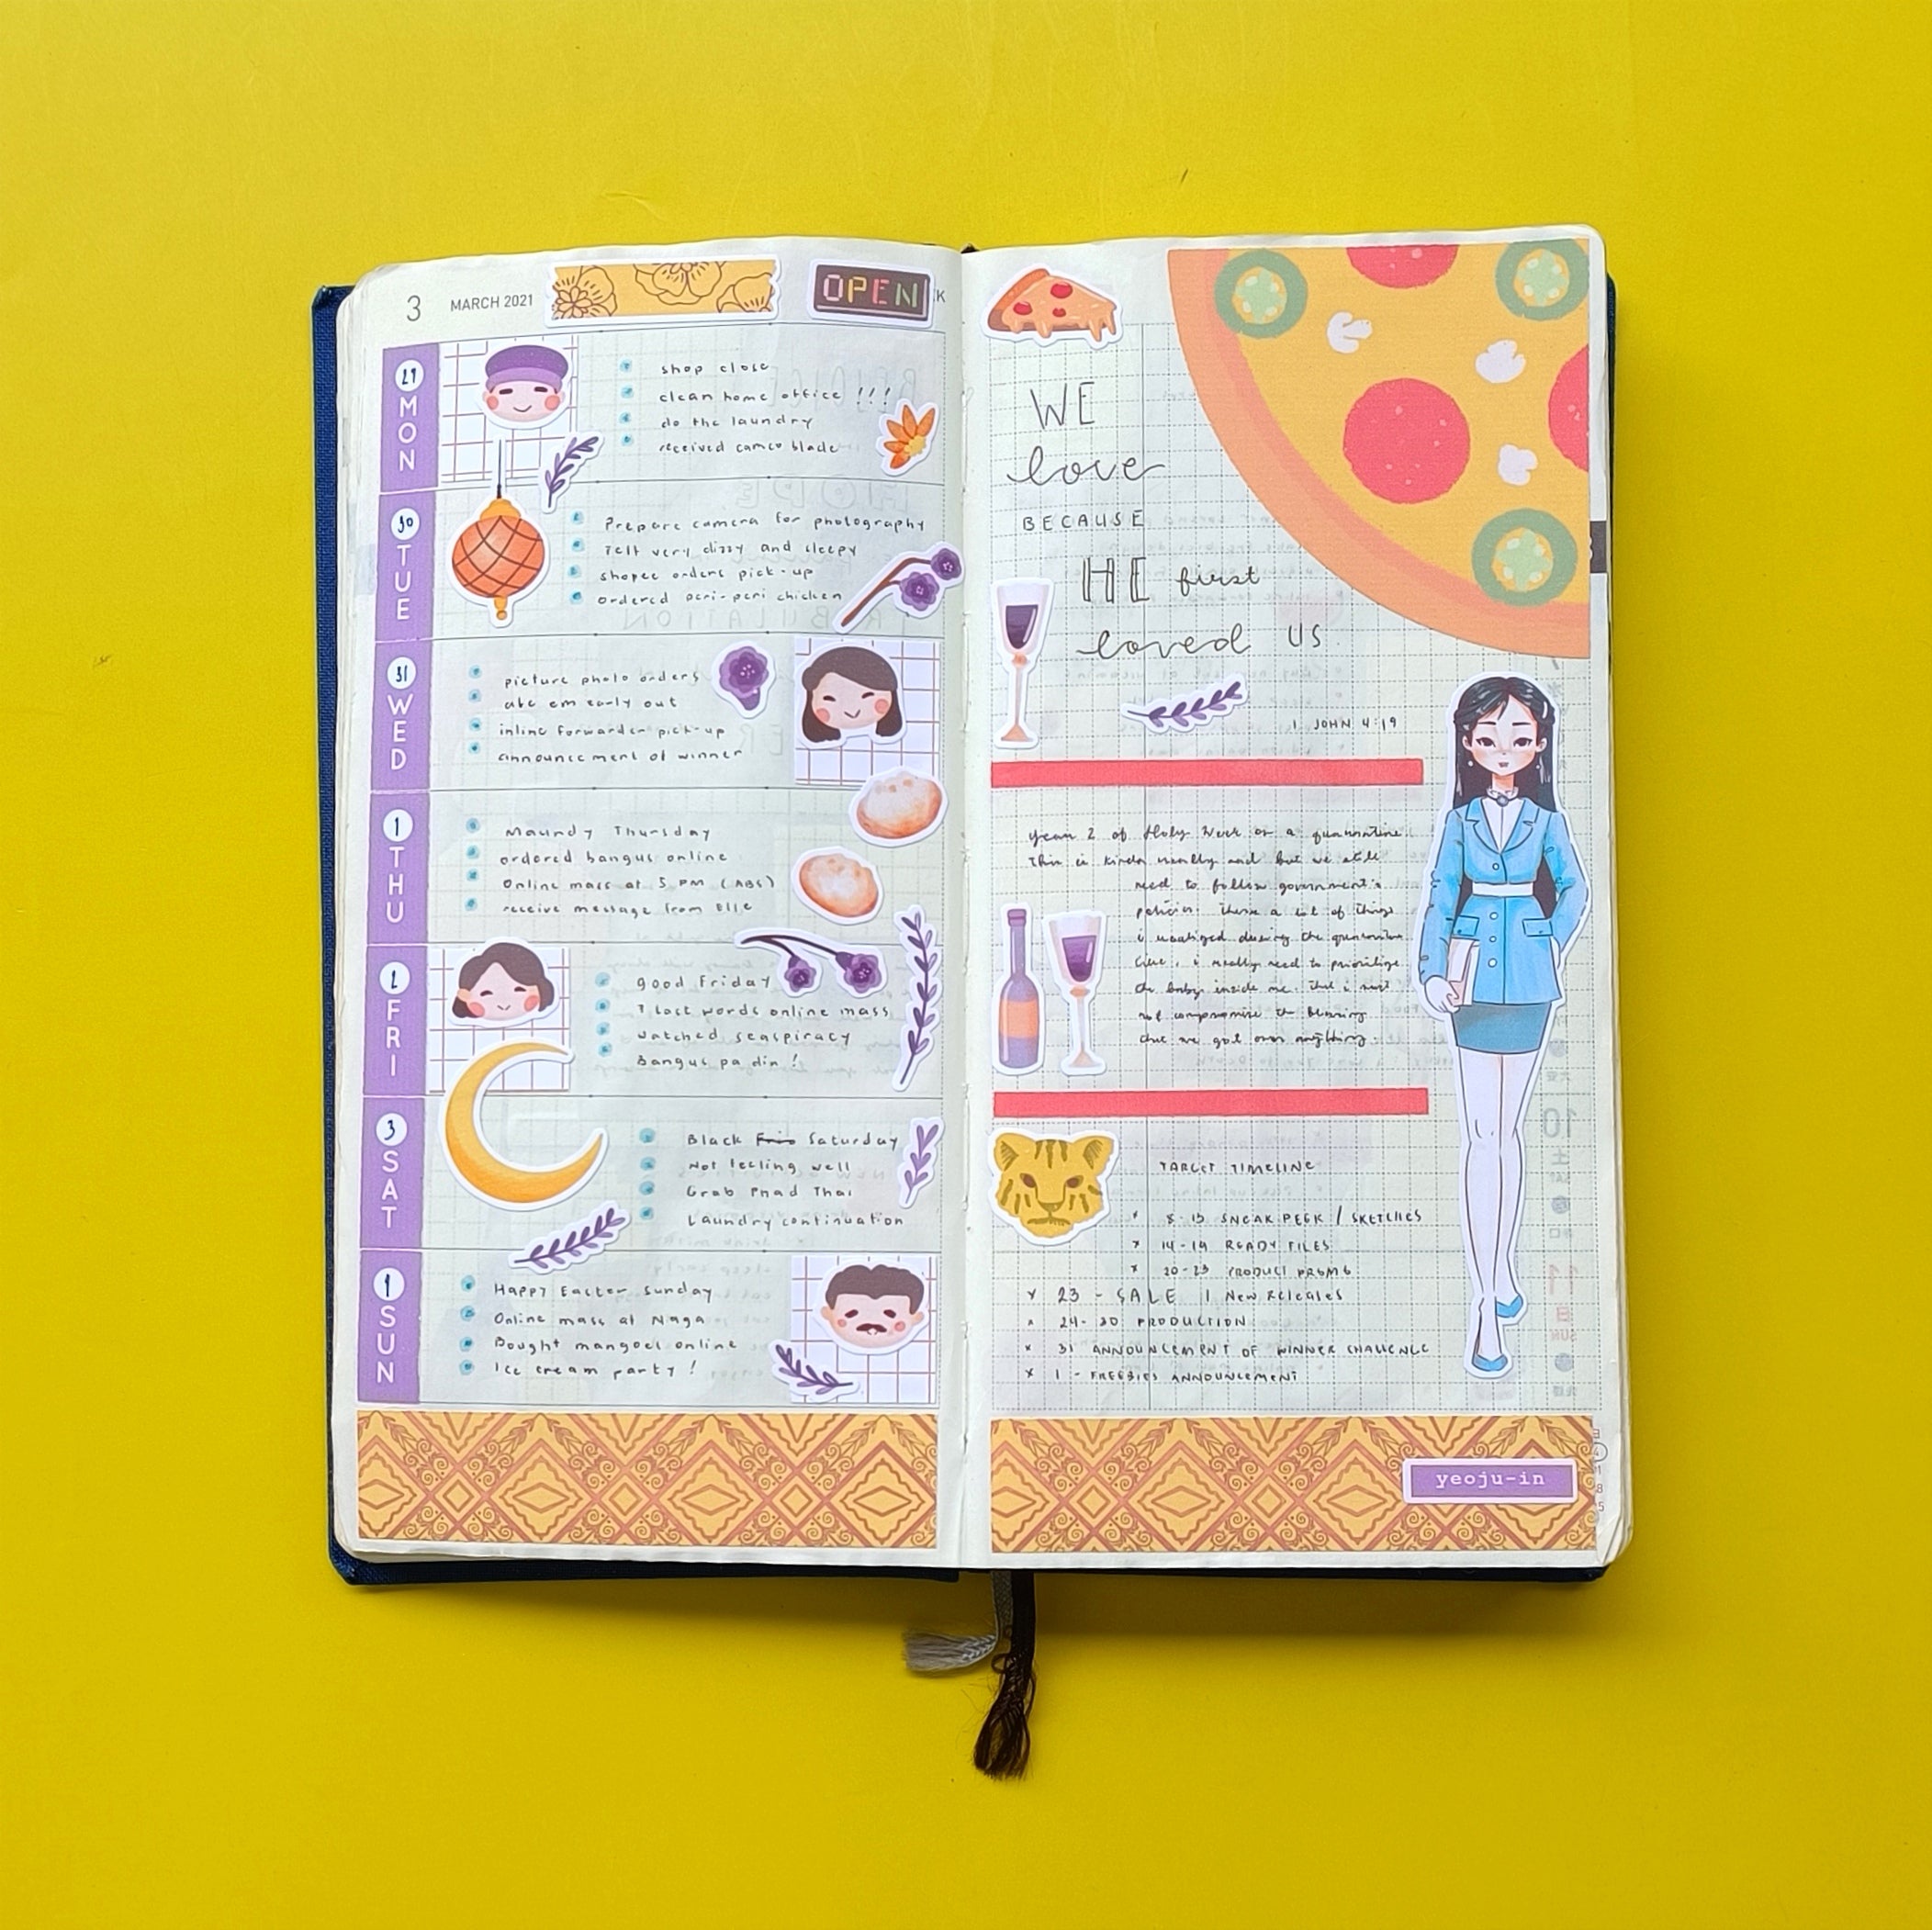 3 MARCH 2021
OPEN
29 MON
shop close
clean home office !!!
do the laundry
received cameo blade
30 TUE
Prepare camera for photography
Felt very dizzy and sleepy
shopee orders pick-up
ordered peri-peri chicken
31 WED
picture photo orders
early out
inline forwarder pick-up
announcement of winner
1 THU
Maundy Thursday
ordered bangus online
Online mass at 5 PM (ABS)
receive message from Elle
2 FRI
good Friday
7 last words online mass
watched seaspiracy
Bangus pa din !
3 SAT
Black Saturday
Not feeling well
Grab Phad Thai
Laundry continuation
SUN
Happy Easter Sunday
Online mass at Naga
Bought mangoes online
Ice cream party !
WE
love
BECAUSE
HE first
loved US
1 JOHN 4:19
Year 2 of Holy Week on a quarantine.
This is kinda really sad but we still
need to follow government's
policies. There a lot of things
i realized during the quarantine
i really need to prioritize
the baby inside me.
not compromise the blessing
that we got over anything.
TARGET TIMELINE
* 8-13 SNEAK PEEK / SKETCHES
* 14-19 READY FILES
* 20-23 PRODUCT PROMO
x 23 - SALE | New Releases
x 24-30 PRODUCTION
x 31 ANNOUNCEMENT OF WINNER CHALLENGE
x 1 - FREEBIES ANNOUNCEMENT
yeoju-in